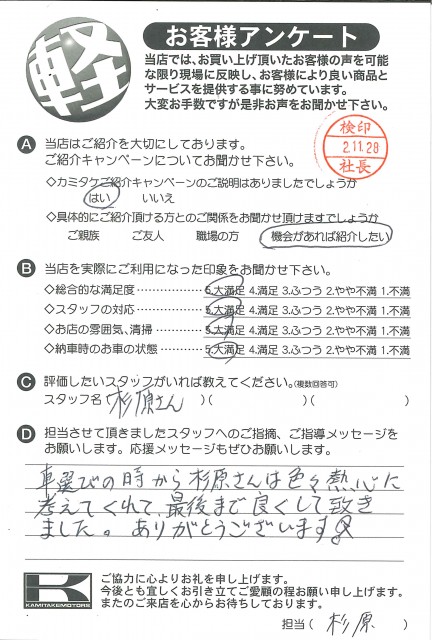 軽
お客様アンケート
当店では、お買い上げ頂いたお客様の声を可能
な限り現場に反映し、お客様により良い商品と
サービスを提供する事に努めています。
大変お手数ですが是非お声をお聞かせ下さい。
A 当店はご紹介を大切にしております。
ご紹介キャンペーンについてお聞かせ下さい。
検印
2.11.28
社長
◇カミタケご紹介キャンペーンのご説明はありましたでしょうか
はい いいえ
◇具体的にご紹介頂ける方とのご関係をお聞かせ頂けますでしょうか
ご親族 ご友人 職場の方 機会があれば紹介したい
B 当店を実際にご利用になった印象をお聞かせ下さい。
◇総合的な満足度 ……………… 5.大満足 4.満足 3.ふつう 2.やや不満 1.不満
◇スタッフの対応 ……………… 5.大満足 4.満足 3.ふつう 2.やや不満 1.不満
◇お店の雰囲気、清掃 ………… 5.大満足 4.満足 3.ふつう 2.やや不満 1.不満
◇納車時のお車の状態 ………… 5.大満足 4.満足 3.ふつう 2.やや不満 1.不満
C 評価したいスタッフがいれば教えてください。(複数回答可)
スタッフ名(杉原さん )( )( )
D 担当させて頂きましたスタッフへのご指摘、ご指導メッセージを
お願いします。応援メッセージもぜひお願いします。
車選びの時から杉原さんは色々熱心に
考えてくれて、最後まで良くして致き
ました。ありがとうございます
K
KAMITAKEMOTORS
ご協力に心よりお礼を申し上げます。
今後とも宜しくお引き立てご愛顧の程お願い申し上げます。
またのご来店を心からお待ちしております。
担当( 杉原 )